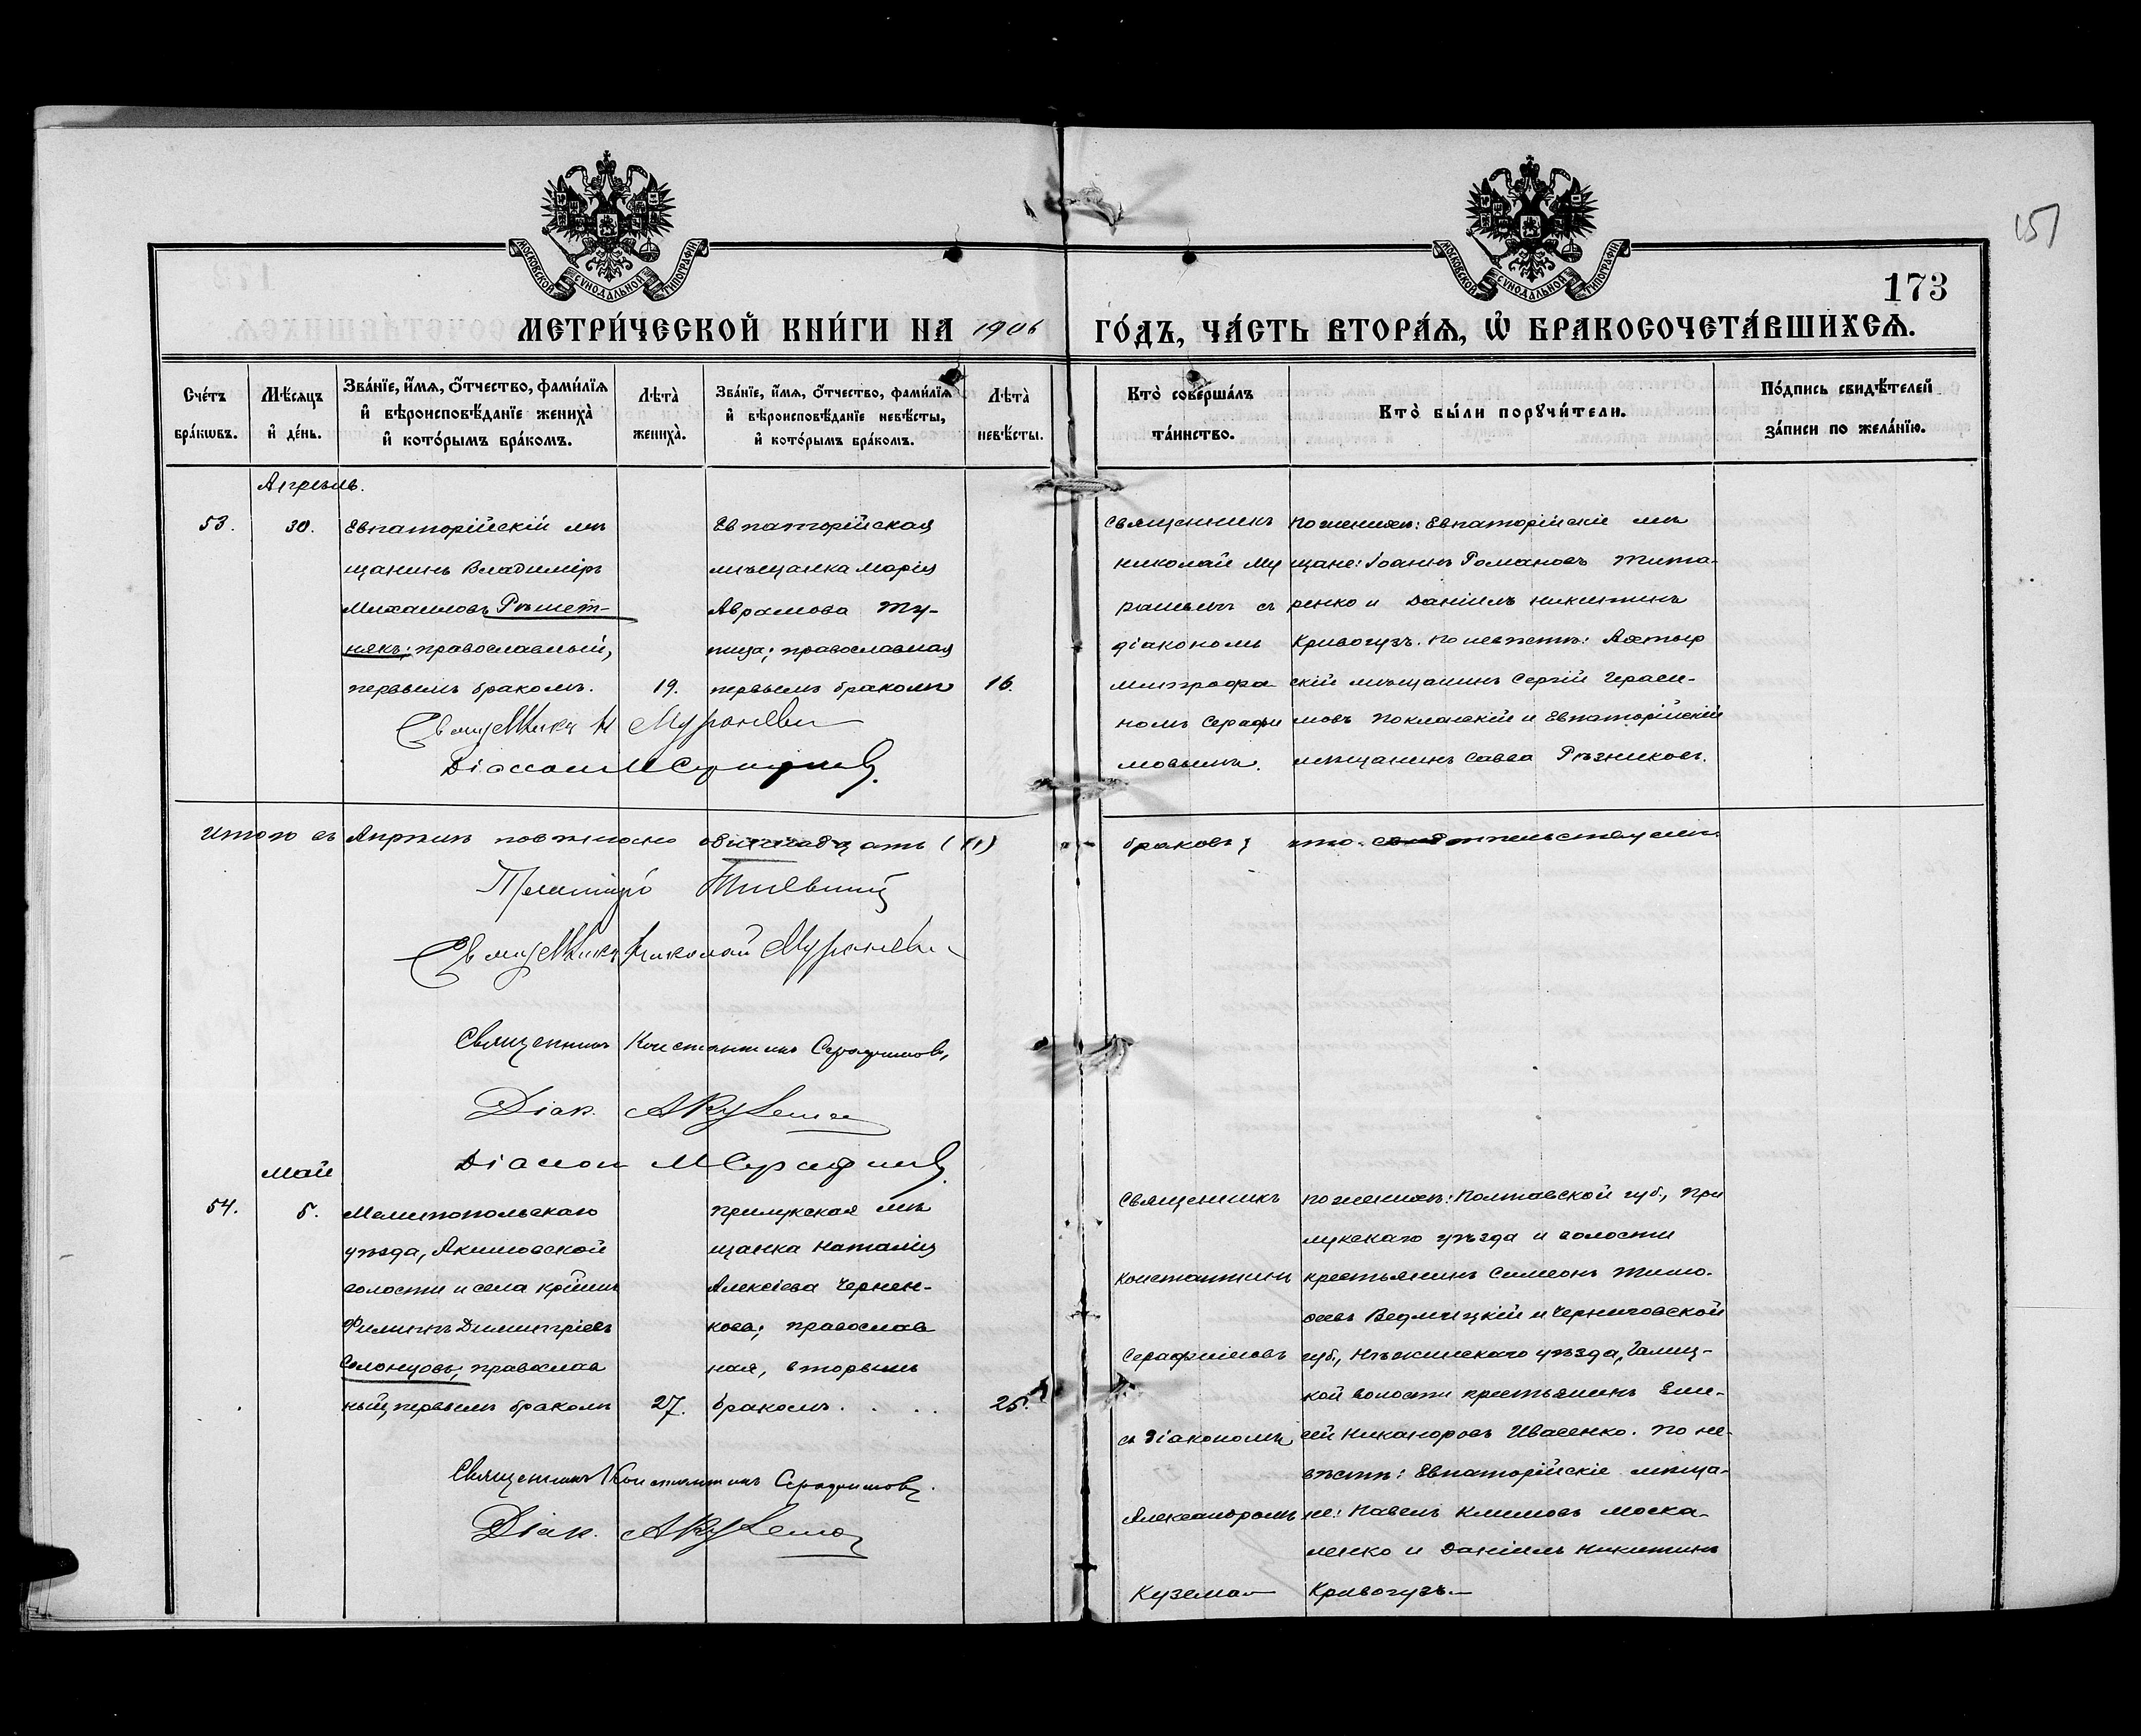 МОСКОВСКОЙ СѴНОДАЛЬНОЙ ТИПОГРАФІИ
МОСКОВСКОЙ СѴНОДАЛЬНОЙ ТИПОГРАФІИ
151
173
МЕТРИ́ЧЕСКОЙ КНИ́ГИ НА 1906 ГО́ДЪ, ЧА́СТЬ ВТОРА́Ѧ, Ѡ҆ БРАКОСОЧЕТА́ВШИХСѦ.
Сче́тъ бра́кѡвъ.
Мѣ́сѧцъ и҆ де́нь.
Зва́нїе, и҆́мѧ, ѻ҆́тчество, фамѝлїѧ
и҆ вѣроисповѣ́данїе жениха̀
и҆ кото́рымъ бра́комъ.
Лѣта̀ жениха̀.
Зва́нїе, и҆́мѧ, ѻ҆́тчество, фамѝлїѧ
и҆ вѣроисповѣ́данїе невѣ́сты,
и҆ кото́рымъ бра́комъ.
Лѣта̀ невѣ́сты.
Кто̀ соверша́лъ
та́инство.
Кто̀ бы́ли порꙋчи́тели.
По́дпись свидѣ́телей
за́писи по жела́нїю.
Апрѣль.
53.
30.
Евпаторійскій мѣ
щанинъ Владиміръ
Михаиловъ Рѣшет-
някъ; православный,
первымъ бракомъ.
19.
Евпаторійская
мѣщанка Марія
Аврамова Ту-
пица; православная
первымъ бракомъ
16.
Священникъ
Николай Му
раневичъ съ
діакономъ
Митрофа
номъ Серафи
мовымъ.
По женихѣ: Евпаторійскіе мѣ
щане: Іоаннъ Романовъ Тита-
ренко и Даніилъ Никитинъ
Кривогузъ. По невѣстѣ: Ахтыр
скій мѣщанинъ Сергій Гераси-
мовъ Поклонскій и Евпаторійскій
мѣщанинъ Савва Рѣзниковъ.
Священникъ Н Мураневич
Діакон М Серафимов.
Итого въ Апрѣлѣ повѣнчано одиннадцать (11) браковъ; что свидѣтельствуемъ
Священникъ Николай Мураневич
Священникъ Константинъ Серафимовъ,
Діак. А Кузема
Діакон М Серафимов.
Май
54.
5.
Мелитопольскаго
уѣзда, Акимовской
волости и села крѣйинъ
Филиппъ Димитріевъ
Солонцовъ; православ
ный, первымъ бракомъ
27.
Прилукская мѣ
щанка Наталія
Алексіева Чернен-
кова; православ
ная, вторымъ
бракомъ. . . .
25.
Священникъ
Константинъ
Серафимовъ
съ діакономъ
Александромъ
Кузема
По женихѣ: Полтавской губ., При
лукскаго уѣзда и волости
крестьянинъ Симеонъ Тимо-
ѳеевъ Ведмицкій и Черниговской
губ., Нѣжинскаго уѣзда, Галиц-
кой волости крестьянинъ Ели-
сей Никаноровъ Ивасенко. По не-
вѣстѣ: Евпаторійскіе мѣща-
не: Павелъ Климовъ Моска-
ленко и Даніилъ Никитинъ
Кривогузъ.
Священникъ Константинъ Серафимовъ.
Діак. А Кузема